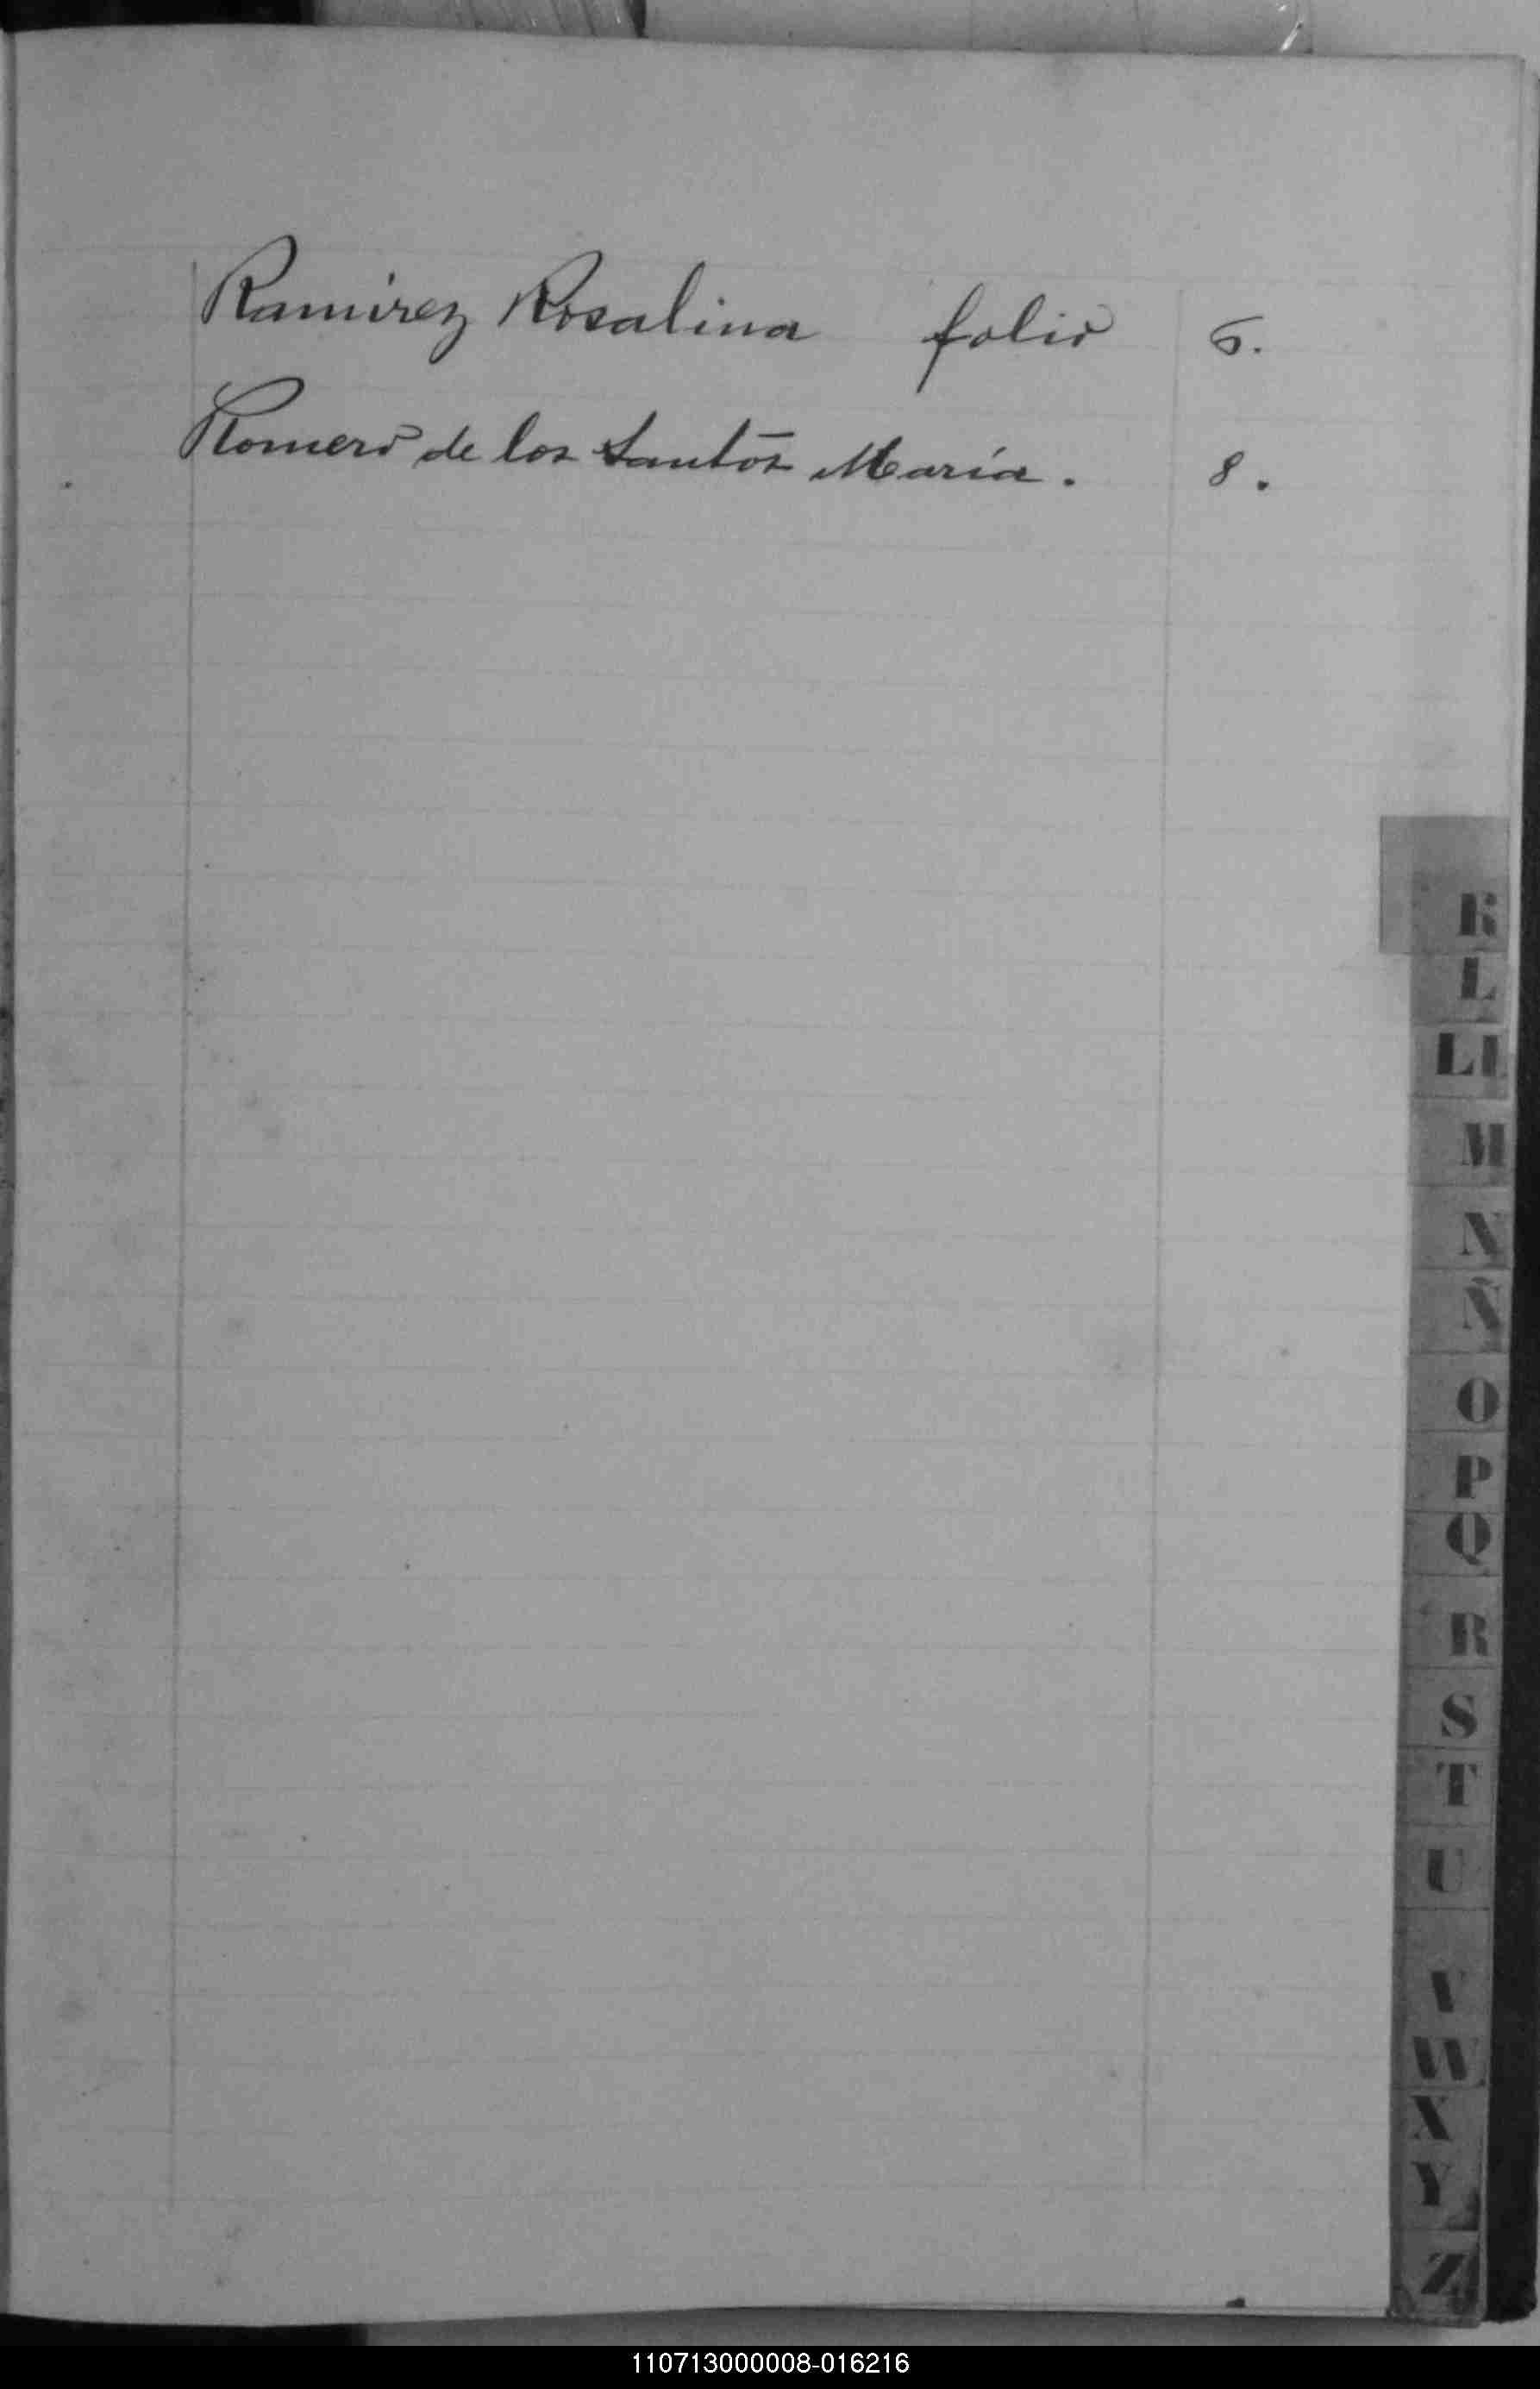 Ramirez Rosalina folio 6.
Romero de los Santos María. 8.
K
L
Ll
M
N
Ñ
O
P
Q
R
S
T
U
V
W
X
Y
Z
110713000008-016216